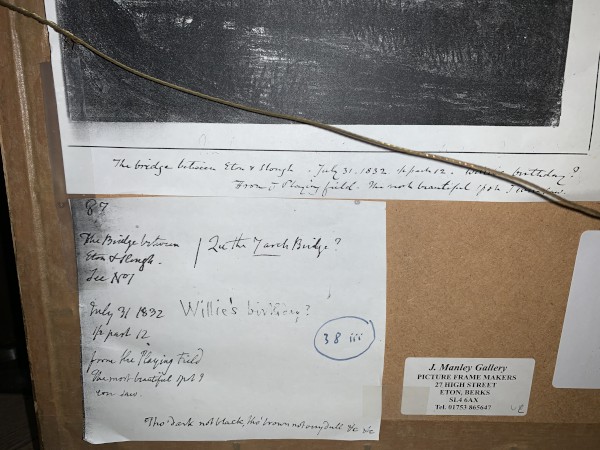 The bridge between Eton & Slough . July 31. 1832 ½ past 12 . birthday?
From Playing field. The most beautiful spot I
87
The Bridge between
Eton & Slough.
See No 1
Qu the 7 arch Bridge?
July 31 1832
Willie's birthday?
½ past 12
38 iii
from the Playing Field
The most beautiful spot I
ever saw.
Tho' dark not black, tho' brown not very dull &c &c
J. Manley Gallery
PICTURE FRAME MAKERS
27 HIGH STREET
ETON, BERKS
SL4 6AX
Tel. 01753 865647